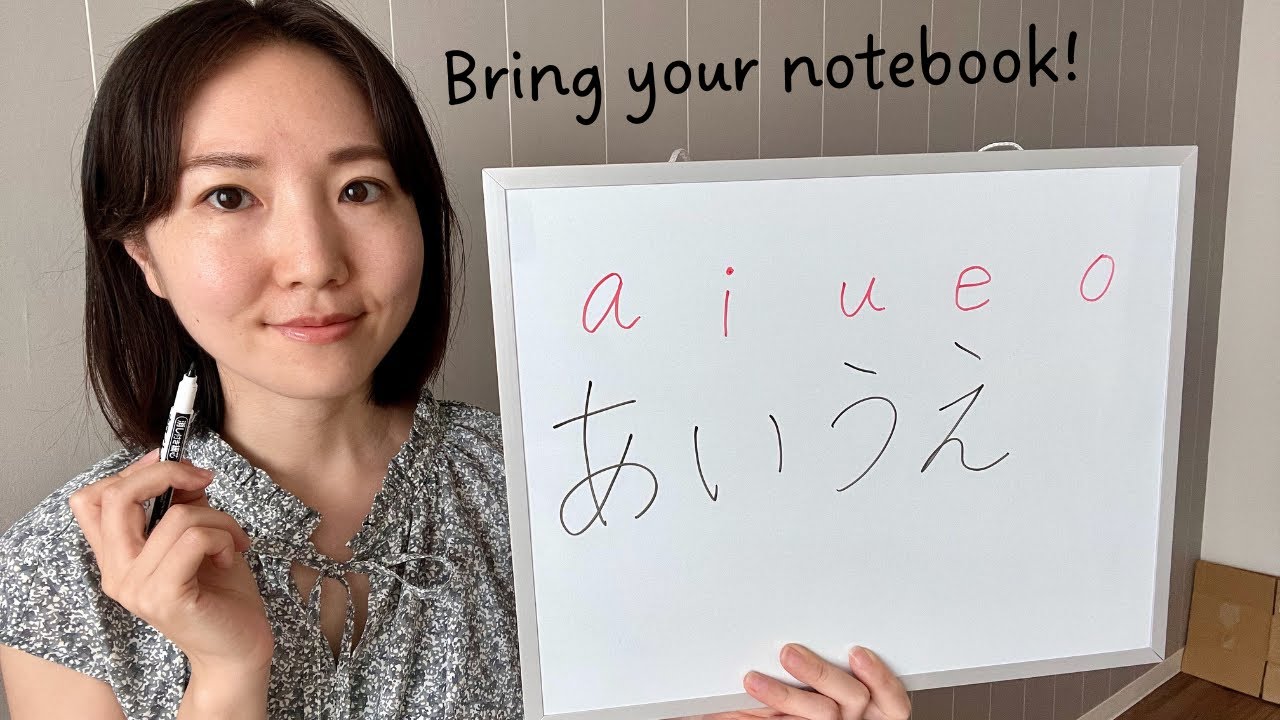 Bring your notebook!
a i u e o
あ い う え